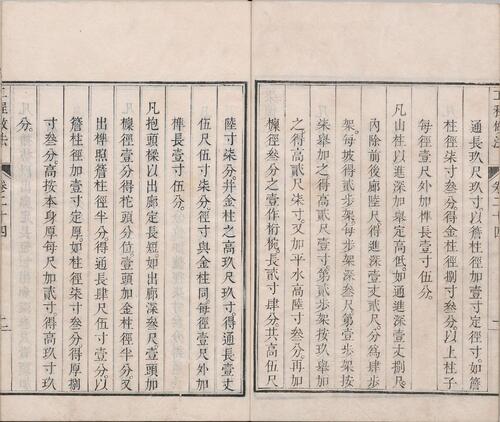 工程做法
通長玖尺玖寸。以簷柱徑加壹寸定徑。如簷
柱徑柒寸叁分。得金柱徑捌寸叁分。以上柱子
每徑壹尺外加榫長壹寸伍分。
凡山柱以進深加舉定高低。如通進深壹丈捌尺。
內除前後廊陸尺。得進深壹丈貳尺。分為肆步
架。每坡得貳步架。每步架深叁尺。第壹步架按
柒舉加之。得高貳尺壹寸。第貳步架按玖舉加
之。得高貳尺柒寸。又加平水高陸寸叁分。再加
檁徑叁分之壹作桁椀。長貳寸肆分。共高伍尺
卷二十四
一
陸寸柒分。并金柱之高玖尺玖寸。得通長壹丈
伍尺伍寸柒分。徑寸與金柱同。每徑壹尺外加
榫長壹寸伍分。
凡抱頭樑以出廊定長短。如出廊深叁尺。壹頭加
檁徑壹分得柁頭分位。壹頭加金柱徑半分。又
出榫照簷柱徑半分。得通長肆尺伍寸壹分。以
簷柱徑加壹寸定厚。如柱徑柒寸叁分。得厚捌
寸叁分。高按本身厚每尺加貳寸。得高玖寸玖
分。
工程做法
卷二十四
二